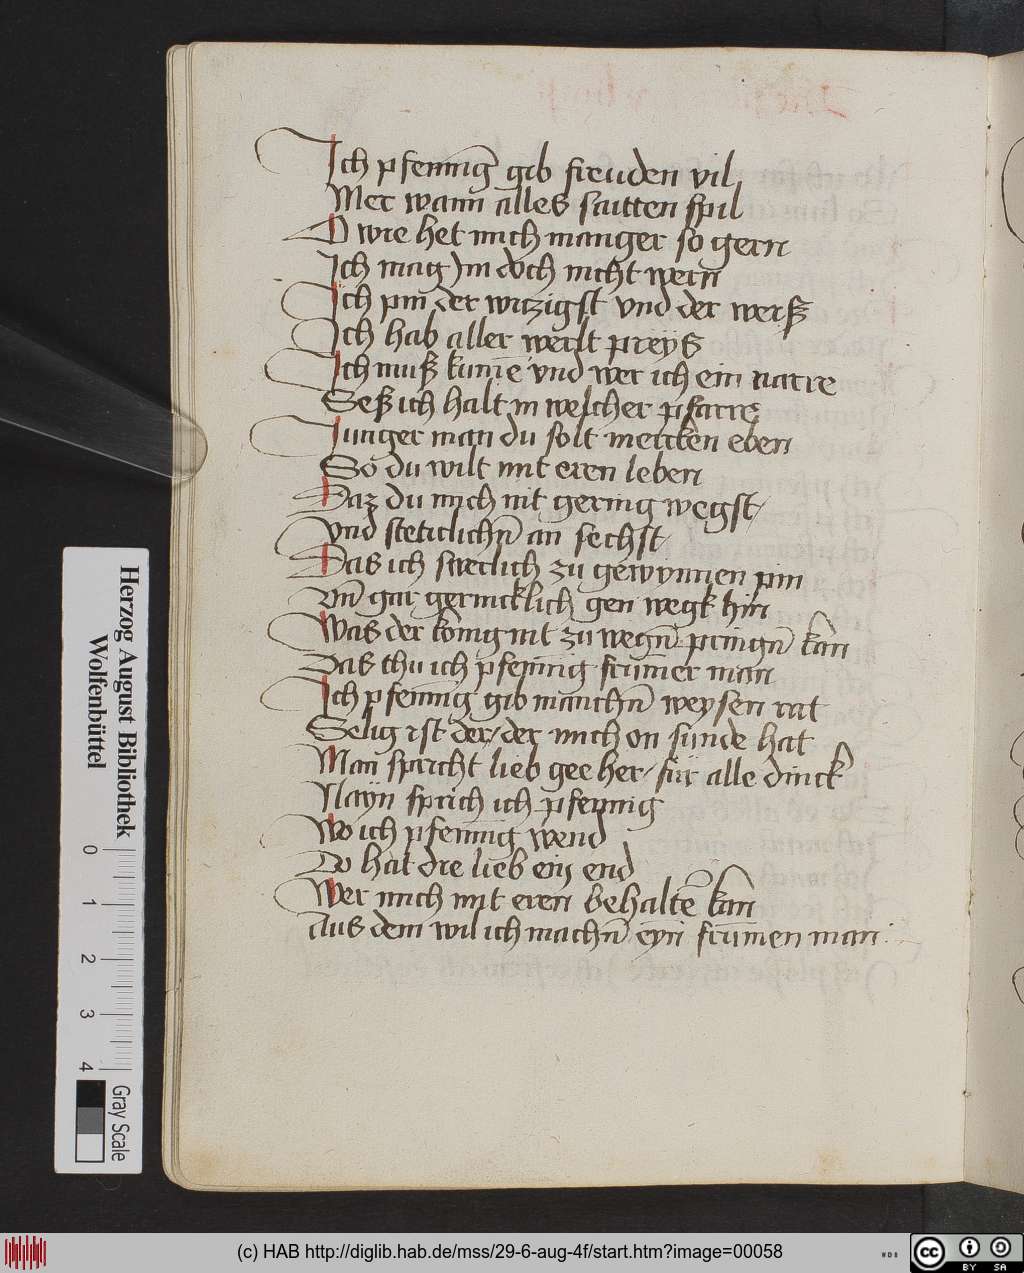 Ich pfennīg gib freuden vil
Mer wann alles saitten spil
O wie het mich manger so gern
Ich mag Jm doch nicht wern̄
Ich pin der witzigst vnd der weyß
Ich hab aller werlt preyß
Ich muß kum̄e vnd wer ich ein narre
Seß ich halt in welcher pfarre
Junger man du solt mercken eben
So du wilt mit eren leben
Daz du mich nit gering wegst
vnd steticlichn̄ an sechst
Das ich swerlich zu gewynnen pin
vn̄ gar gerincklich gen wegk hin
Was der konig nit zu wegn̄ pringn̄ kan
Das thu ich pfennig frum̄er man
Ich pfennīg gib manchn̄ weysen rat
Selig ist der/der mich on sunde hat
Man spricht lieb gee her/für alle dinck
Nayn sprich ich pfennig
Wo ich pfennīg wend
Do hat die lieb ein end
Wer mich mit eren behaltē kan
Aus dem wil ich machn̄ eyn frum̄en man
Herzog August Bibliothek
Wolfenbüttel
0 1 2 3 4
Gray Scale
(c) HAB http://diglib.hab.de/mss/29-6-aug-4f/start.htm?image=00058
WDB
cc BY SA